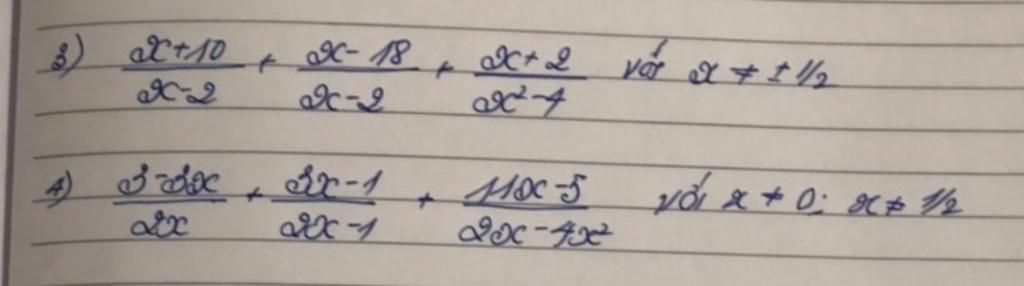 3) \frac{x+10}{x-2} + \frac{x-18}{x-2} + \frac{x+2}{x^2-4} với x ≠ ± 1/2
4) \frac{3-3x}{2x} + \frac{3x-1}{2x-1} + \frac{11x-5}{2x-4x^2} với x ≠ 0; x ≠ 1/2